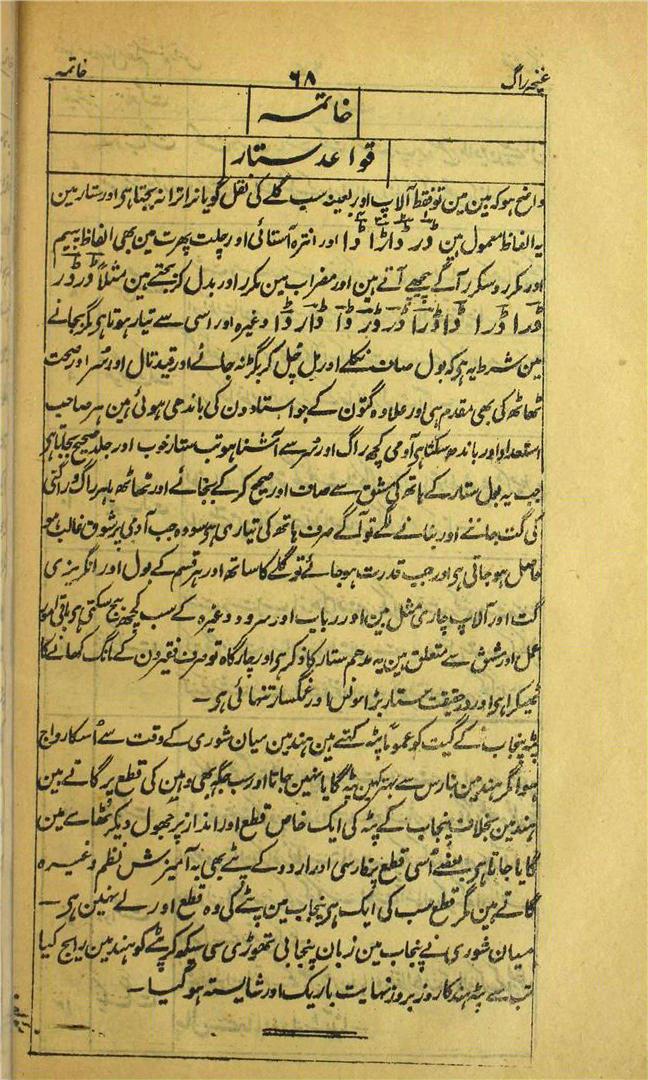 غنچۂ راگ ۶۸ خاتمہ
خاتمہ
قواعد ستار
واضح ہو کہ بین مین تو فقط آلاپ اور بعینہ سب گلے کی نقل گویا نہ اترا نہ بجتا ہی اور ستار مین
یہ الفاظ معمول ہین ڈر ڈاڑا ڈا اور انترہ آستائی اور چلت پھرت مین بھی الفاظ پیہم
اور مکرر و سکرر آگے پیچھے آتے ہین اور مضراب مین مکرر اور بدل کر بجتے ہین مثلاً ڈرڈر
ڈرا ڈرا ڈاڈرا ڈرڈر ڈا ڈارڈا وغیرہ اور اسی سے تیار ہوتا ہی مگر بجانے
مین شرط یہ ہی کہ بول صاف نکلے اور مل جل کر بگڑ نہ جائے اور قید تال اور سُر اور صحت
ٹھاٹھ کی بھی مقدم ہی اور علاوہ گتون کے جو استادون کی باندھی ہوئی ہین ہر صاحب
استعداد اور باندھ سکتا ہی آدمی کچھ راگ اور سُر سے آشنا ہو تب ستار خوب اور جلد صحیح بجتا ہی
جب یہ بول ستار کے ہاتھ کی مشق سے صاف اور صحیح کر کے بجائے اور ٹھاٹھ ہر راگ و راگنی
کی گت جانے اور بنانے لگے تو آگے صرف ہاتھ کی تیاری ہی سو وہ جب آدمی پر شوق غالب ہو
حاصل ہو جاتی ہی اور جب قدرت ہو جائے تو گلے کا ساتھ اور ہر قسم کے بول اور انگریزی
گت اور آلاپ چاری مثل بین اور رباب اور سرود وغیرہ کے سب کچھ بج سکتی ہی باقی امور
عمل اور مشق سے متعلق ہین یہ مدھم ستار کا ذکر ہی اور چارگاہ تو صرف فقیرون کے مانگ کھانے کا
ٹھیکرا ہی اور در حقیقت ستار بڑا مونس اور غمگسار تنہائی ہی ۔
پٹہ پنجاب کے گیت کو عموماً پٹہ کہتے ہین ہند مین میان شوری کے وقت سے اُسکا رواج
ہوا اگر ہند مین بنارس سے بہتر کہین پٹہ گایا نہین جاتا اور سب جگہ بھی وہین کی قطع پر گاتے ہین
ہند مین بخلاف پنجاب کے پٹہ کی ایک خاص قطع اور انداز پر جھول دیکر ٹھاے مین
گایا جاتا ہی بعضے اُسی قطع پر فارسی اور اردو کے پٹے بھی بہ آمیزش نظم وغیرہ
گاتے ہین مگر قطع سب کی ایک ہی پنجاب مین پٹے کی وہ قطع اور لے نہین ہی ۔
میان شوری نے پنجاب مین زبان پنجابی تھوڑی سی سیکھ کر پٹے کو ہند مین رایج کیا
تب سے پٹہ ہند کا روز بروز نہایت باریک اور شایستہ ہو گیا ۔